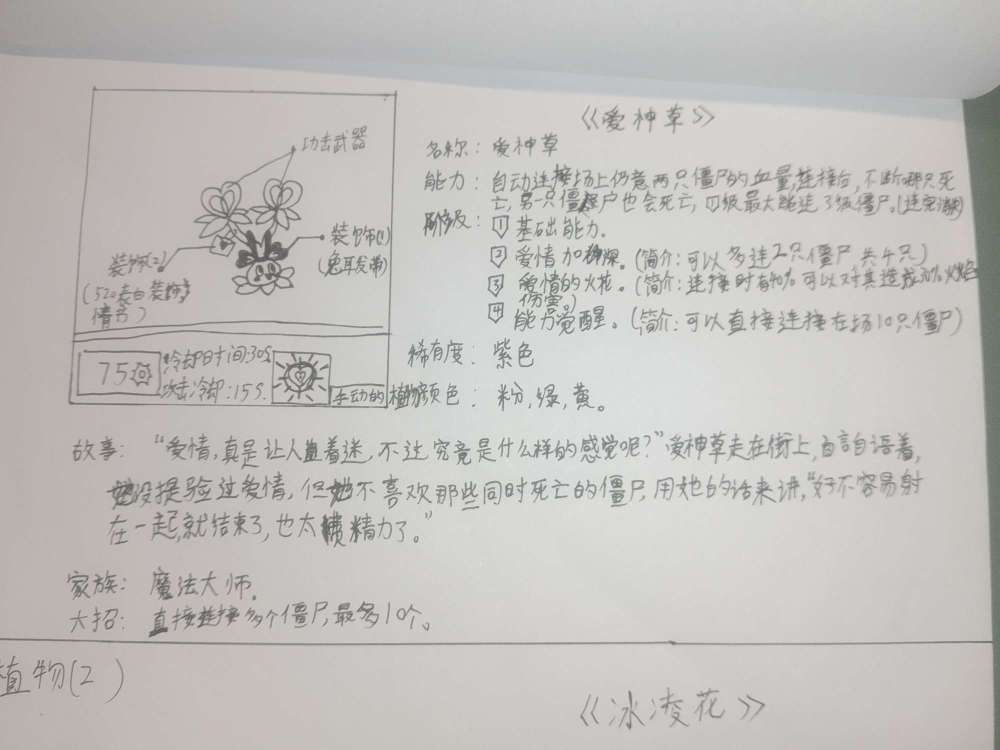 《爱神草》
攻击武器
装饰(1)
(兔耳发带)
装饰(2)
(520表白装饰
情书)
75
冷却时间:30S
攻击冷却:15S.
名称: 爱神草
能力: 自动连接场上仍意两只僵尸的血量,连接后, 不断哪只死
亡, 另一只僵尸也会死亡, 四级最大跳连3级僵尸.
阶级: 1 基础能力.
2 爱情加 (简介: 可以多连2只僵尸 共4只)
3 爱情的火花. (简介: 连接时有40%可以对其造成30%火焰
伤害.)
4 能力觉醒. (简介: 可以直接连接在场10只僵尸)
稀有度: 紫色
植物颜色: 粉,绿,黄。
故事: “爱情,真是让人着迷, 不过究竟是什么样的感觉呢?”爱神草走在街上,自言自语着,
她没提验过爱情, 但她不喜欢那些同时死亡的僵尸, 用她的话来讲,“好不容易射
在一起,就结束了, 也太 精力了。”
家族: 魔法大师.
大招: 直接连接多个僵尸,最多10个。
植物(2)
《冰凌花》